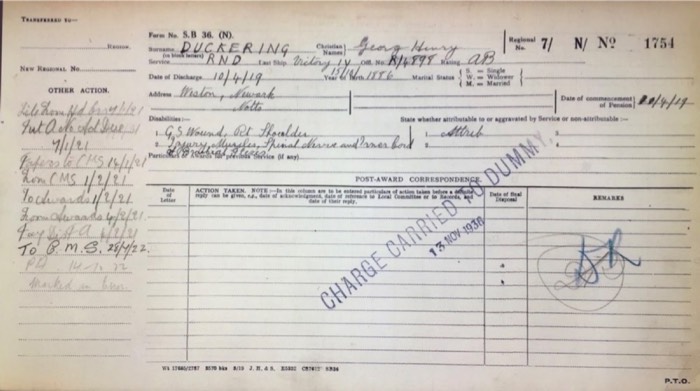 TRANSFERRED TO—
Form No. S.B 36. (N).
REGION.
Surname DUCKERING Christian Names George Henry
(in block letters)
Regional No. 7/ N/ No 1754
Service RND Last Ship Victory IV Off. No. R/4898 Rating AB
NEW REGIONAL No.
Date of Discharge 10/4/19 Year of Birth 1886 Marital Status S. — Single W. — Widower M. — Married
OTHER ACTION.
Address Weston, Newark
Notts
Date of commencement of Pension
Disabilities:— State whether attributable to or aggravated by Service or non-attributable:—
1 G.S Wound, Rt Shoulder 1 Attrib
2 Injury Muscles, Spinal Nerve and Inner Cord
of Brachial Plexus
7/1/21
Refers to CMS
from CMS 1/2/21
To Awards 1/2/21
From Awards
Particulars of Awards for previous Service (if any)
POST-AWARD CORRESPONDENCE.
Date of Letter
ACTION TAKEN. NOTE:—In this column are to be entered particulars of action taken before a definite reply can be given, e.g., date of acknowledgment, date of reference to Local Committee or to Records, and date of their reply.
Date of Final Disposal
REMARKS
To B.M.S. 28/4/22
CHARGE CARRIED TO DUMMY
13 NOV 1936
P.T.O.